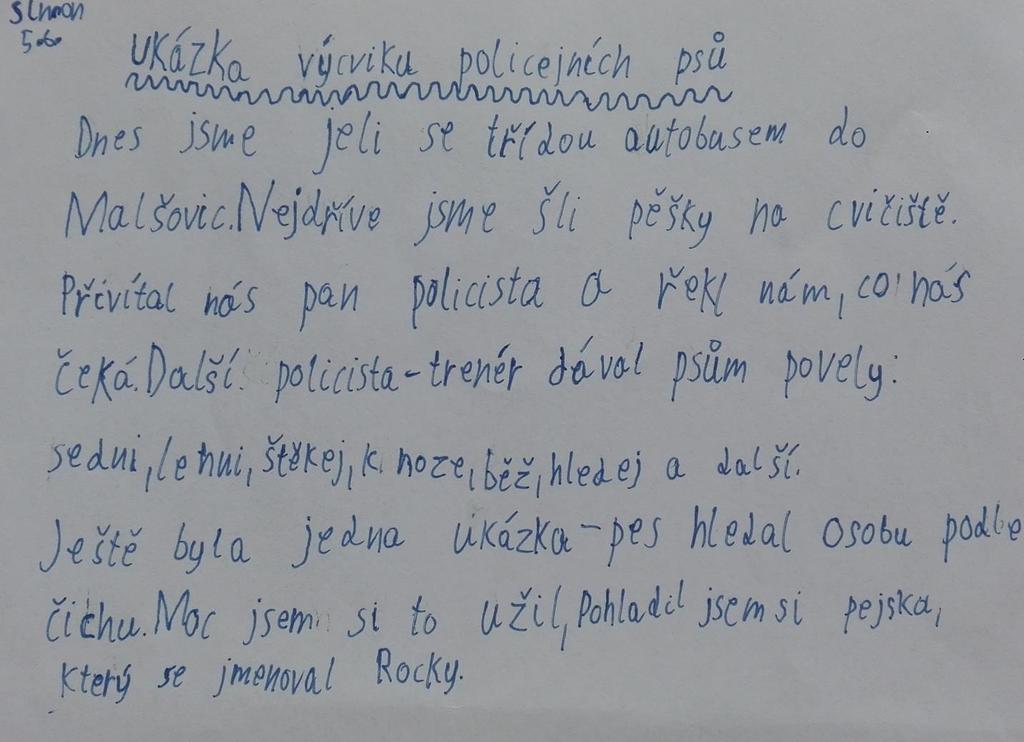 Ukázka výcviku policejních psů
Dnes jsme jeli se třídou autobusem do
Malšovic. Nejdříve jsme šli pěšky na cvičiště.
Přivítal nás pan policista a řekl nám, co nás
čeká. Další policista-trenér dával psům povely:
sedni, lehni, štěkej, k noze, běž, hledej a další.
Ještě byla jedna ukázka-pes hledal osobu podle
čichu. Moc jsem si to užil, Pohladil jsem si pejska,
který se jmenoval Rocky.